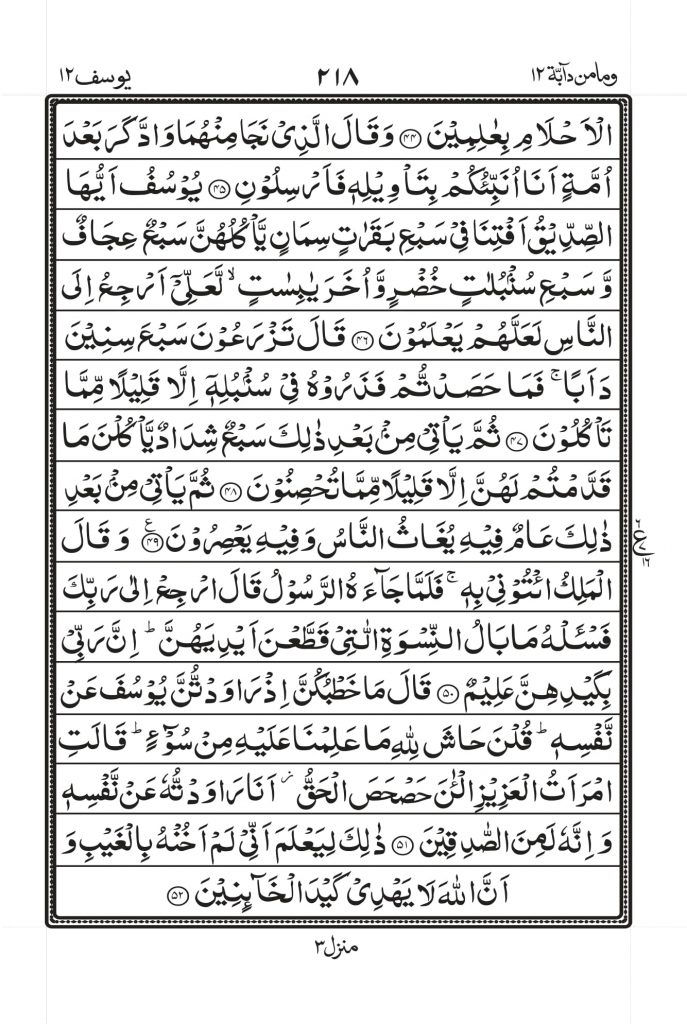 وما من دآبّة ١٢
٢١٨
یوسف ١٢
الۡاَحۡلَامِ بِعٰلِمِیۡنَ ﴿۴۴﴾ وَقَالَ الَّذِیۡ نَجَا مِنۡهُمَا وَادَّكَرَ بَعۡدَ
اُمَّةٍ اَنَا اُنَبِّئُكُمۡ بِتَاۡوِیۡلِهٖ فَاَرۡسِلُوۡنِ ﴿۴۵﴾ یُوۡسُفُ اَیُّهَا
الصِّدِّیۡقُ اَفۡتِنَا فِیۡ سَبۡعِ بَقَرٰتٍ سِمَانٍ یَّاۡكُلُهُنَّ سَبۡعٌ عِجَافٌ
وَّ سَبۡعِ سُنۡۢبُلٰتٍ خُضۡرٍ وَّاُخَرَ یٰبِسٰتٍ ۙ لَّعَلِّیۡۤ اَرۡجِعُ اِلَی
النَّاسِ لَعَلَّهُمۡ یَعۡلَمُوۡنَ ﴿۴۶﴾ قَالَ تَزۡرَعُوۡنَ سَبۡعَ سِنِیۡنَ
دَاَبًا ۚ فَمَا حَصَدۡتُّمۡ فَذَرُوۡهُ فِیۡ سُنۡۢبُلِهٖۤ اِلَّا قَلِیۡلًا مِّمَّا
تَاۡكُلُوۡنَ ﴿۴۷﴾ ثُمَّ یَاۡتِیۡ مِنۡۢ بَعۡدِ ذٰلِكَ سَبۡعٌ شِدَادٌ یَّاۡكُلۡنَ مَا
قَدَّمۡتُمۡ لَهُنَّ اِلَّا قَلِیۡلًا مِّمَّا تُحۡصِنُوۡنَ ﴿۴۸﴾ ثُمَّ یَاۡتِیۡ مِنۡۢ بَعۡدِ
ذٰلِكَ عَامٌ فِیۡهِ یُغَاثُ النَّاسُ وَفِیۡهِ یَعۡصِرُوۡنَ ﴿۴۹﴾ؑ وَ قَالَ
٦
ع
١٦
الۡمَلِكُ ائۡتُوۡنِیۡ بِهٖ ۚ فَلَمَّا جَآءَهُ الرَّسُوۡلُ قَالَ ارۡجِعۡ اِلٰی رَبِّكَ
فَسۡـَٔلۡهُ مَا بَالُ النِّسۡوَةِ الّٰتِیۡ قَطَّعۡنَ اَیۡدِیَهُنَّ ؕ اِنَّ رَبِّیۡ
بِكَیۡدِهِنَّ عَلِیۡمٌ ﴿۵۰﴾ قَالَ مَا خَطۡبُكُنَّ اِذۡ رَاوَدۡتُّنَّ یُوۡسُفَ عَنۡ
نَّفۡسِهٖ ؕ قُلۡنَ حَاشَ لِلّٰهِ مَا عَلِمۡنَا عَلَیۡهِ مِنۡ سُوۡٓءٍ ؕ قَالَتِ
امۡرَاَتُ الۡعَزِیۡزِ الۡـٰٔنَ حَصۡحَصَ الۡحَقُّ ۫ اَنَا رَاوَدۡتُّهٗ عَنۡ نَّفۡسِهٖ
وَ اِنَّهٗ لَمِنَ الصّٰدِقِیۡنَ ﴿۵۱﴾ ذٰلِكَ لِیَعۡلَمَ اَنِّیۡ لَمۡ اَخُنۡهُ بِالۡغَیۡبِ وَ
اَنَّ اللّٰهَ لَا یَهۡدِیۡ كَیۡدَ الۡخَآئِنِیۡنَ ﴿۵۲﴾
منزل ٣